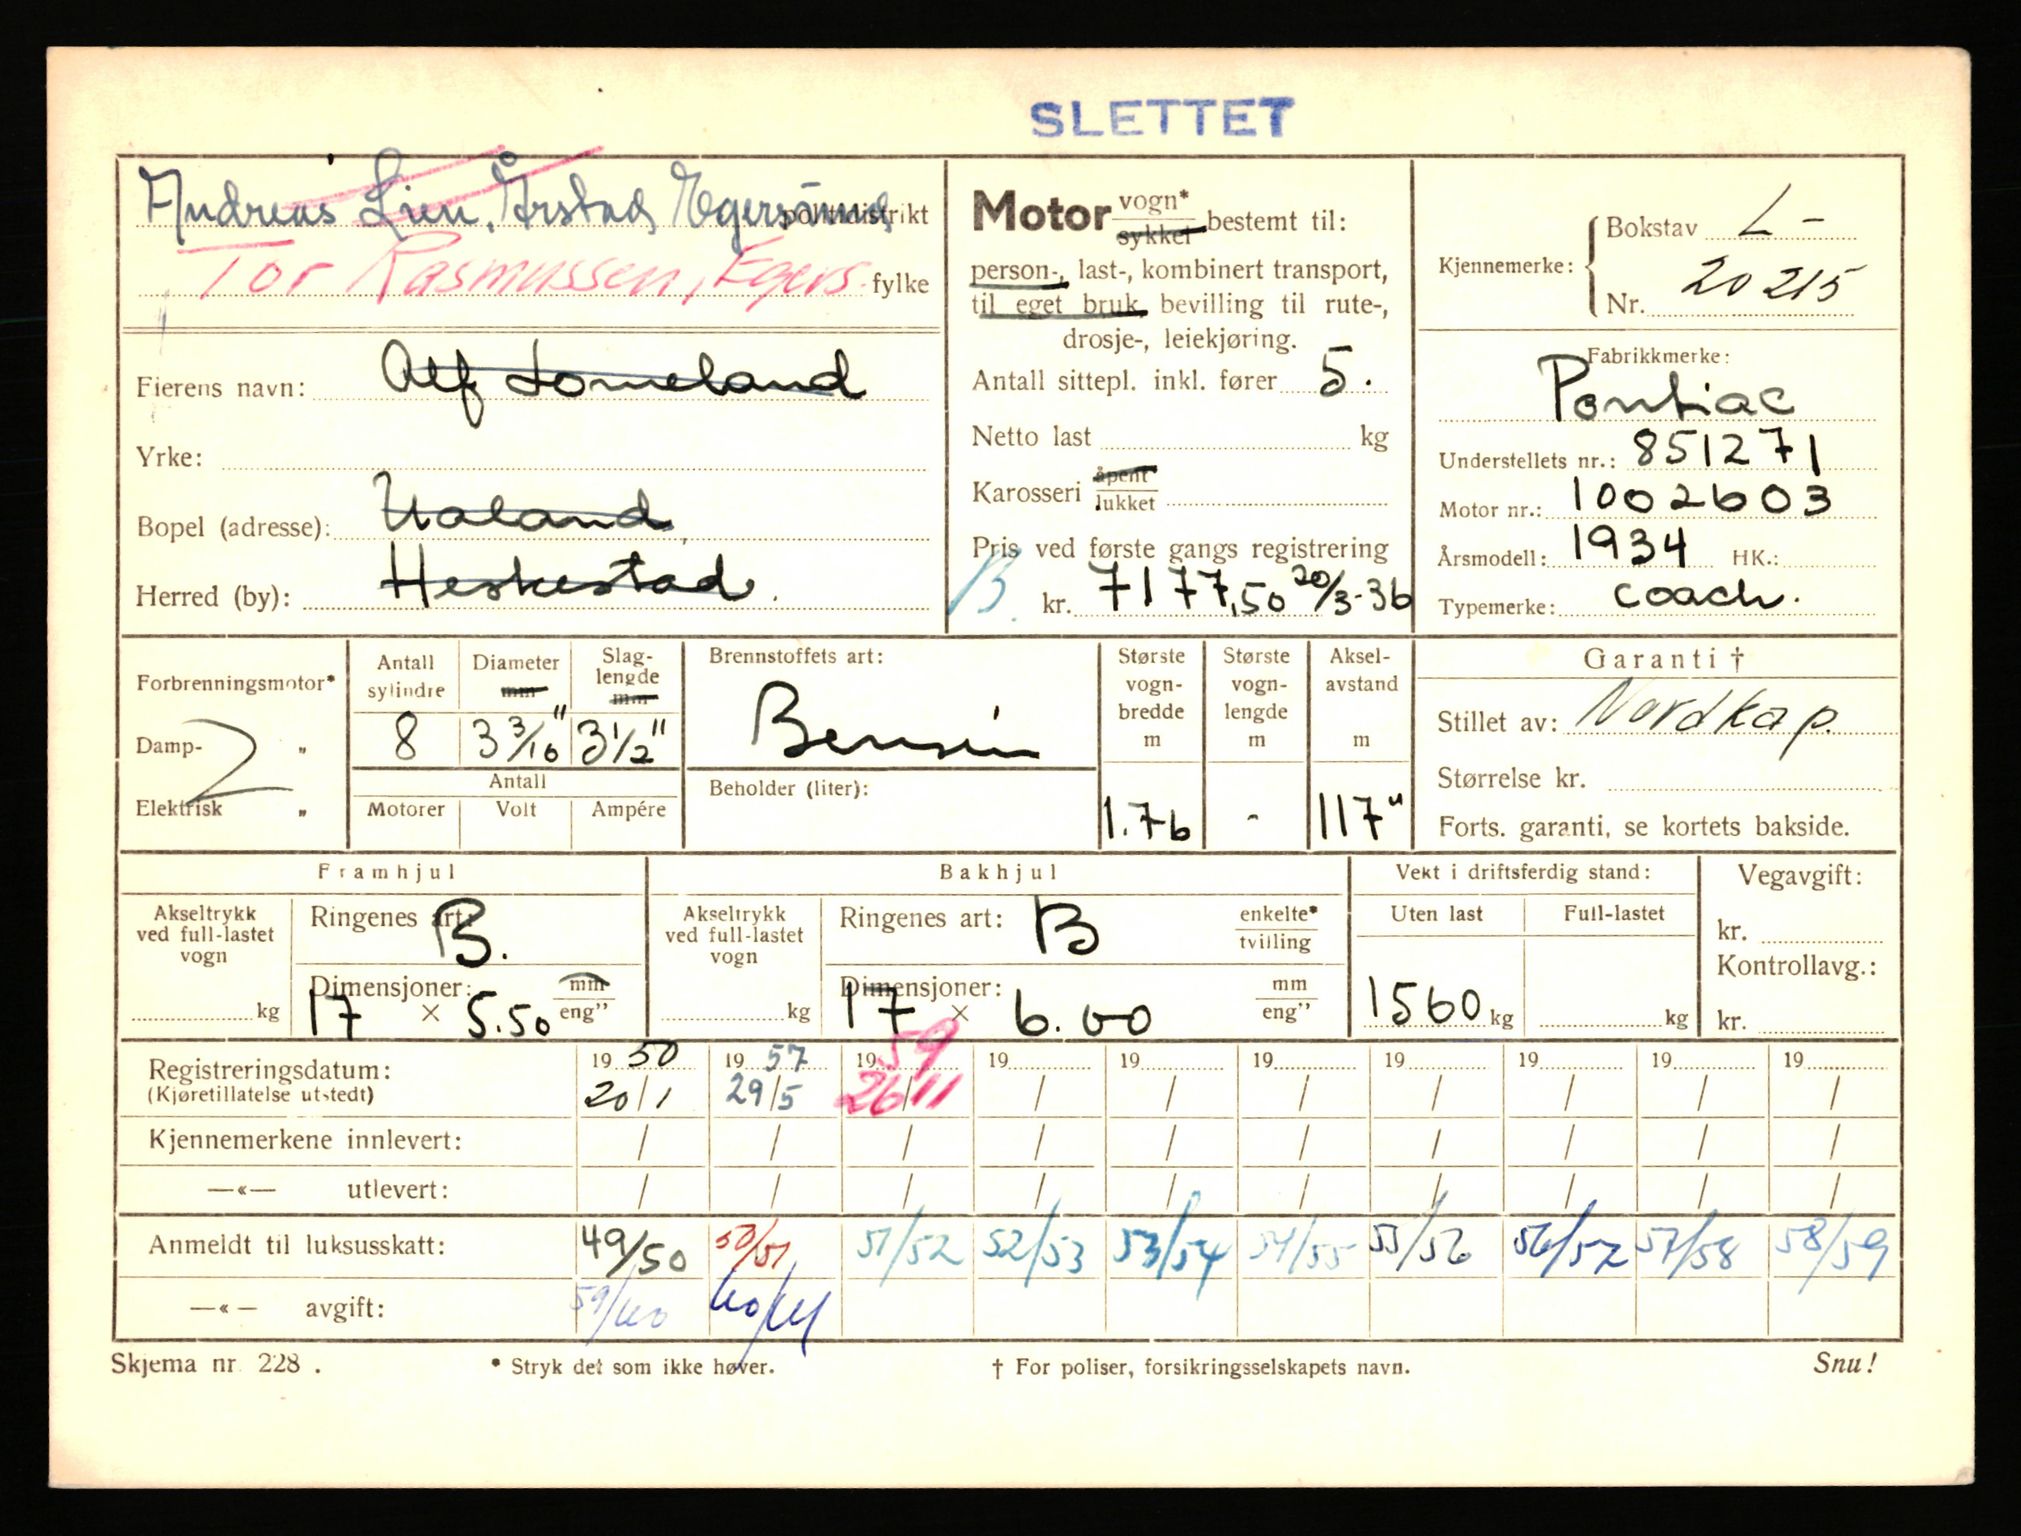 SLETTET
Andreas Lien, Årstad, Egersund politidistrikt
Tor Rasmussen, Egers. fylke
Eierens navn: Alf Lomeland
Yrke:
Bopel (adresse): Ualand,
Herred (by): Heskestad.
Motor vogn* sykkel bestemt til:
person-, last-, kombinert transport,
til eget bruk, bevilling til rute-,
drosje-, leiekjøring.
Antall sittepl. inkl. fører 5.
Netto last kg
Karosseri åpent lukket
Pris ved første gangs registrering
B. kr. 7177,50 20/3-36
Kjennemerke: Bokstav L-
Nr. 20215
Fabrikkmerke:
Pontiac
Understellets nr.: 851271
Motor nr.: 1002603
Årsmodell: 1934 HK.:
Typemerke: coach.
Forbrenningsmotor*
Damp- „
Elektrisk „
2
Antall sylindre Diameter mm Slaglengde mm
8 3 3/16" 3 1/2"
Antall
Motorer Volt Ampére
Brennstoffets art:
Bensin
Beholder (liter):
Største vogn-bredde m
1.76
Største vogn-lengde m
-
Aksel-avstand m
117"
Garanti †
Stillet av: Nordkap.
Størrelse kr.
Forts. garanti, se kortets bakside.
Framhjul
Akseltrykk ved full-lastet vogn
kg
Ringenes art: B.
Dimensjoner: mm eng”
17 × 5.50
Bakhjul
Akseltrykk ved full-lastet vogn
kg
Ringenes art: B enkelte* tvilling
Dimensjoner: mm eng”
17 × 6.00
Vekt i driftsferdig stand:
Uten last Full-lastet
1560 kg kg
Vegavgift:
kr.
Kontrollavg.:
kr.
Registreringsdatum: 19 50 19 57 19 59 19 19 19 19 19 19 19
(Kjøretillatelse utstedt) 20/1 29/5 26/11 / / / / / / /
Kjennemerkene innlevert: / / / / / / / / / /
—«— utlevert: / / / / / / / / / /
Anmeldt til luksusskatt: 49/50 50/51 51/52 52/53 53/54 54/55 55/56 56/57 57/58 58/59
—«— avgift: 59/60 60/61
Skjema nr 228 . * Stryk det som ikke høver. † For poliser, forsikringsselskapets navn. Snu!